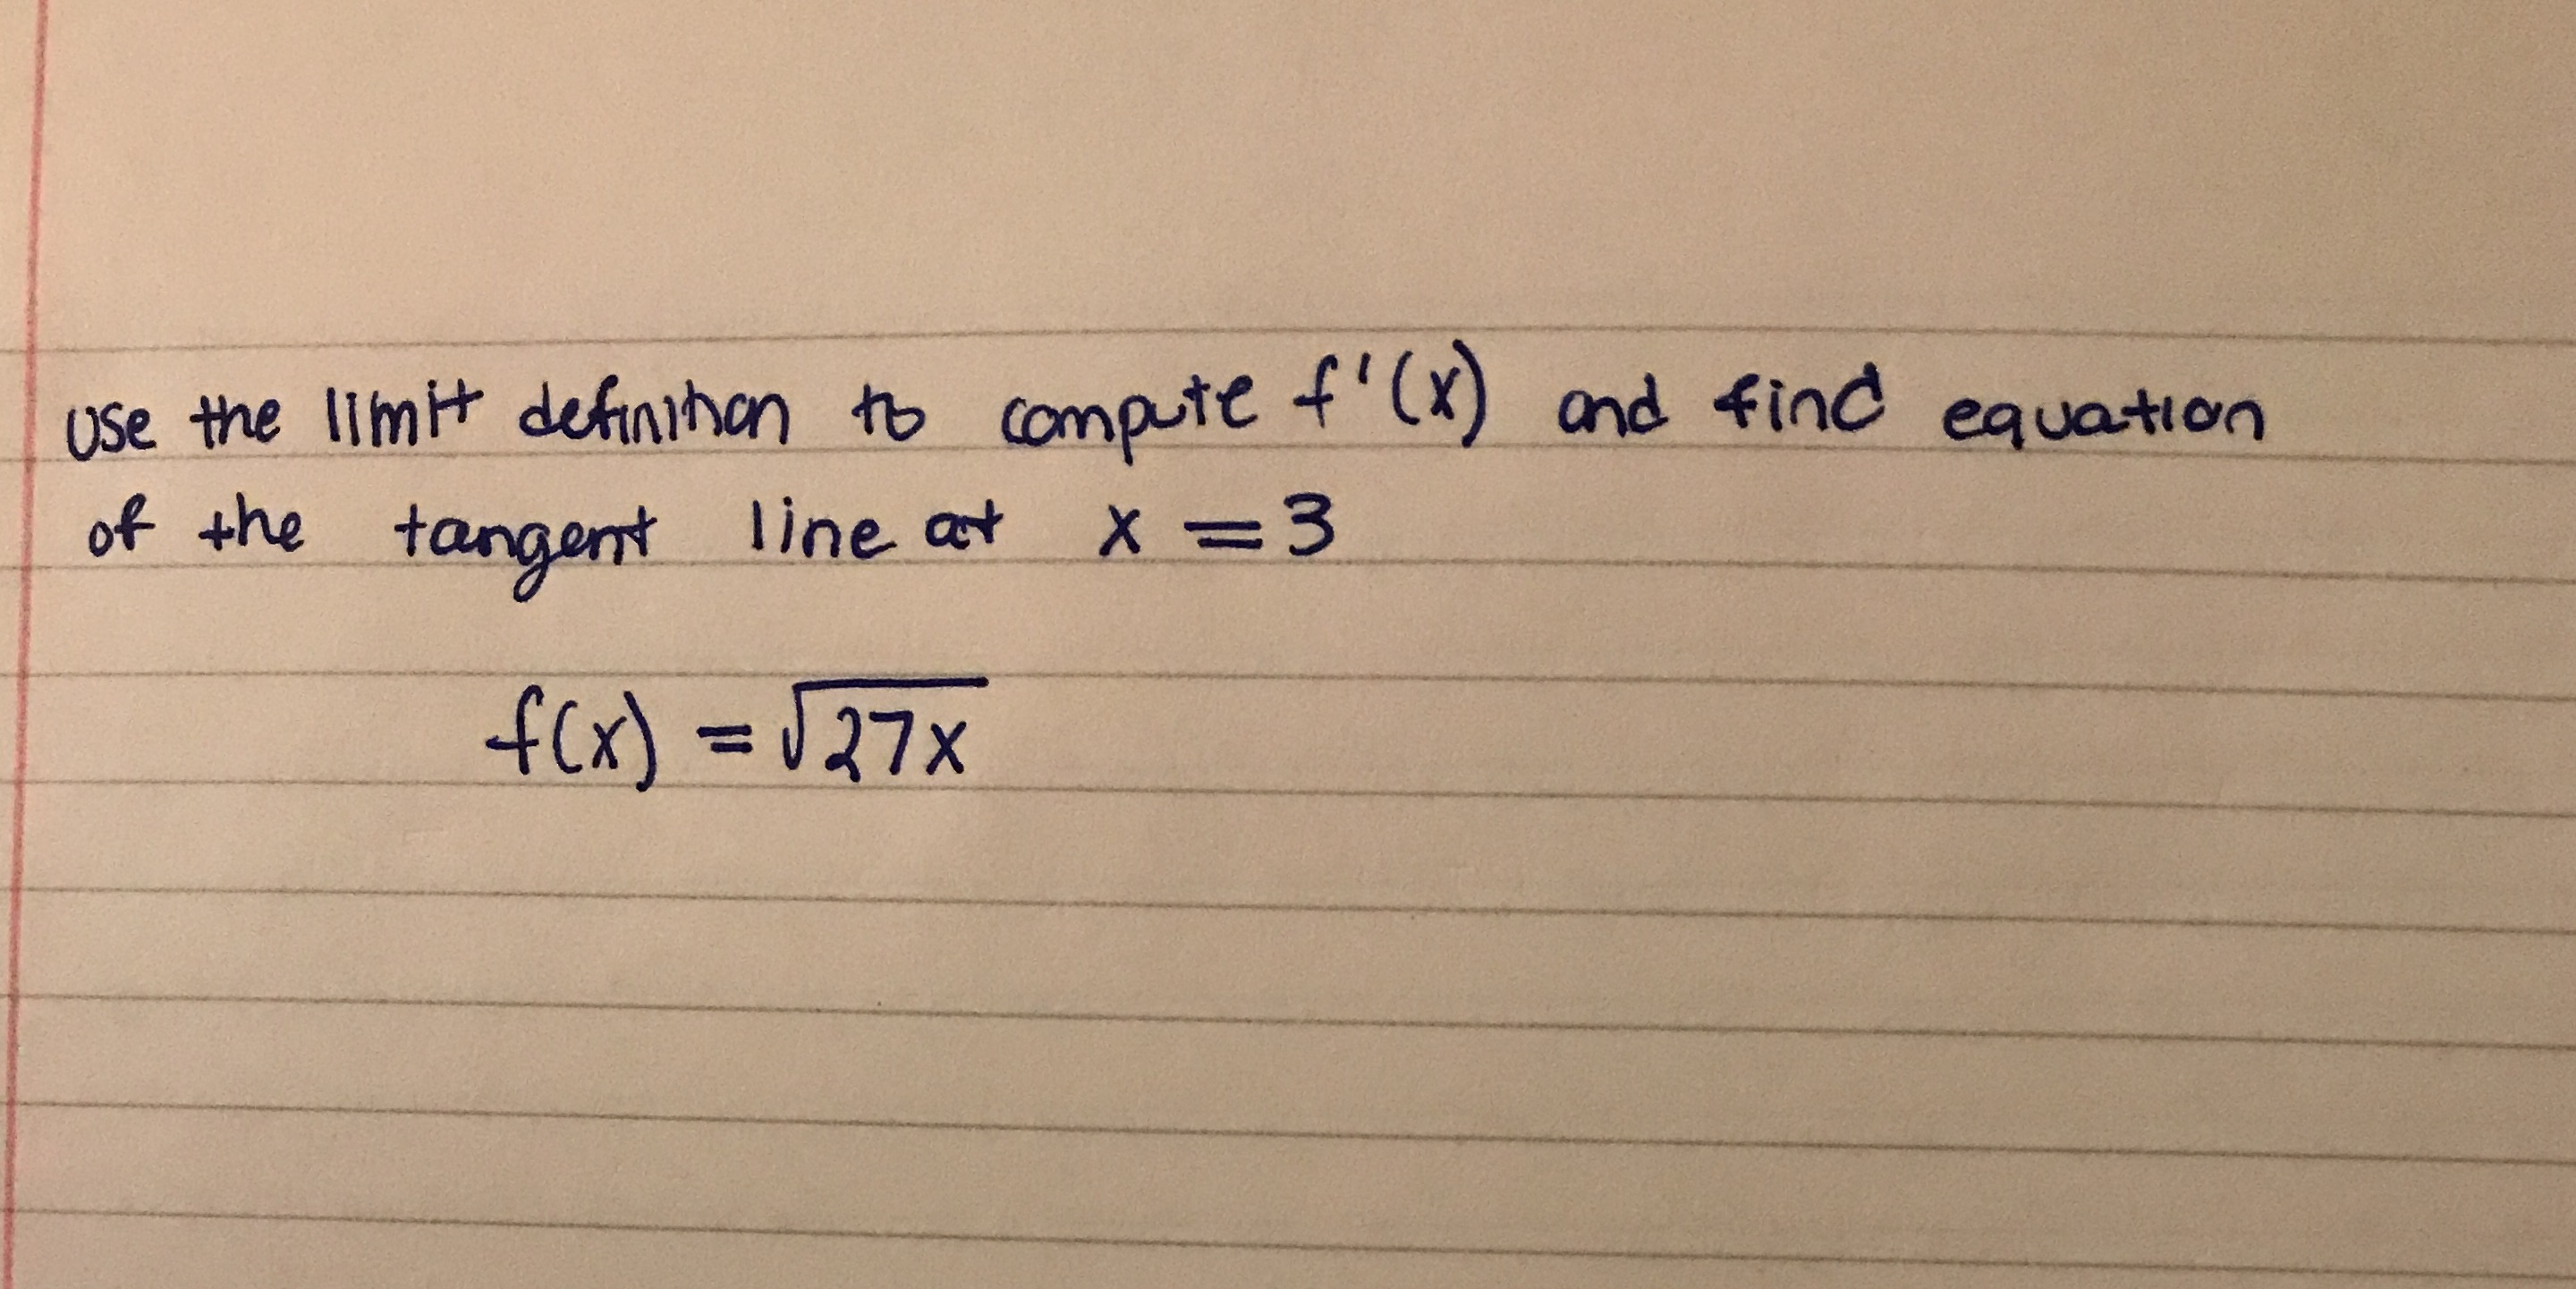 Use the limit definition to compute f'(x) and find equation
of the tangent line at x = 3
f(x) = √27x